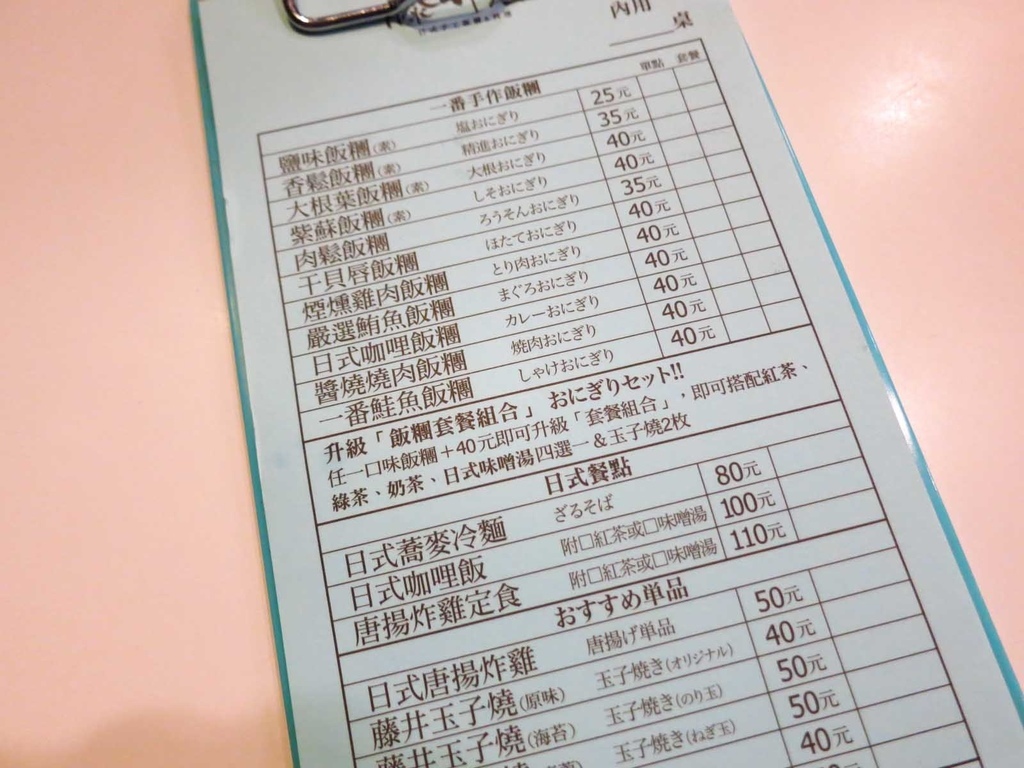 內用
桌
一番手作飯糰 單點 套餐
鹽味飯糰(素) 塩おにぎり 25元
香鬆飯糰(素) 精進おにぎり 35元
大根葉飯糰(素) 大根おにぎり 40元
紫蘇飯糰(素) しそおにぎり 40元
肉鬆飯糰 ろうそんおにぎり 35元
干貝唇飯糰 ほたておにぎり 40元
煙燻雞肉飯糰 とり肉おにぎり 40元
嚴選鮪魚飯糰 まぐろおにぎり 40元
日式咖哩飯糰 カレーおにぎり 40元
醬燒燒肉飯糰 焼肉おにぎり 40元
一番鮭魚飯糰 しゃけおにぎり 40元
升級「飯糰套餐組合」 おにぎりセット!!
任一口味飯糰+40元即可升級「套餐組合」,即可搭配紅茶、
綠茶、奶茶、日式味噌湯四選一&玉子燒2枚
日式餐點
日式蕎麥冷麵 ざるそば 80元
日式咖哩飯 附□紅茶或□味噌湯 100元
唐揚炸雞定食 附□紅茶或□味噌湯 110元
おすすめ単品
日式唐揚炸雞 唐揚げ単品 50元
藤井玉子燒(原味) 玉子焼き(オリジナル) 40元
藤井玉子燒(海苔) 玉子焼き(のり玉) 50元
玉子焼き(ねぎ玉) 50元
40元